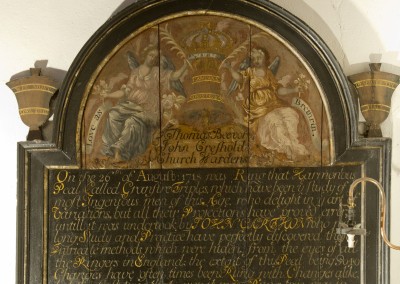 LOVE AS
BRETHREN
Thomas Beever
John Gresfold
Church Wardens
On the 26th of August 1718 was Rung that Harmonious
Peal Called Grandsire Triples, which have been ye Study of ye
most Ingenious men of this Age, who delight in
Variations but all their Projections have prov'd errors
untill it was undertook by JOHN GARTHON who
long Study and Practice have perfectly discovered
Intricate methods which were hidden from the eyes of all
the Ringers in England, the extent of this Peal being 5040
Changes have often times been Rung with Changes alike